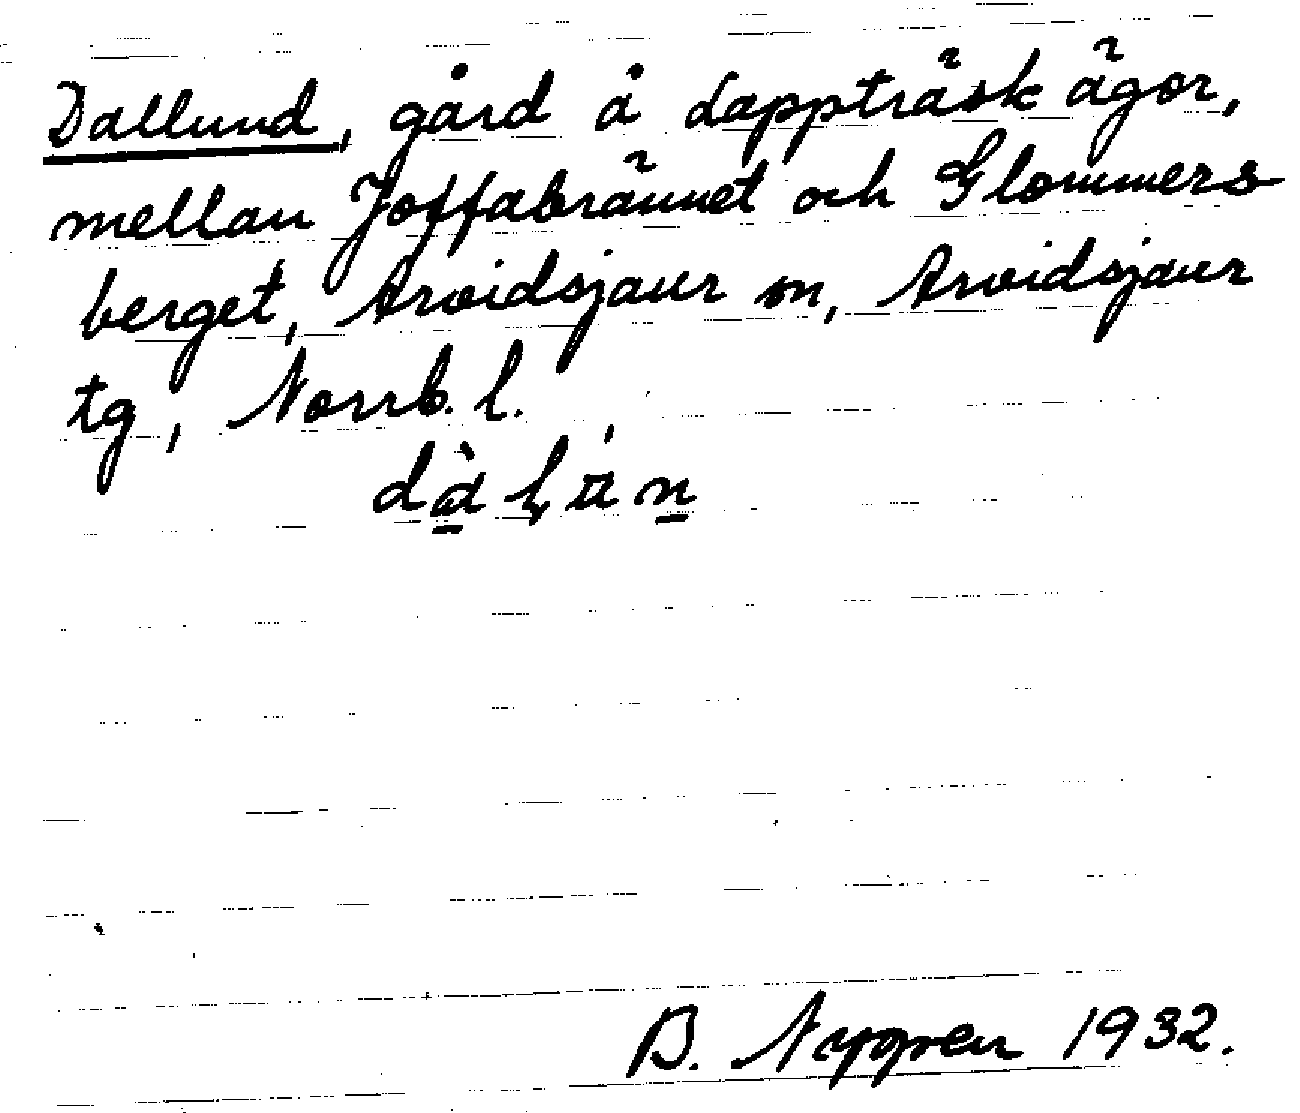 Dallund, gård å Lappträsk ägor,
mellan Joffabrännet och Glommers
berget, Arvidsjaur sn, Arvidsjaur
tg, Norrb. l.
B. Nygren 1932.